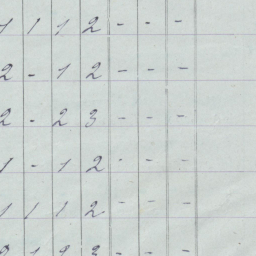 1 1 1 2 - - -
2 - 1 2 - - -
2 - 2 3 - - -
1 - 1 2 - - -
1 1 1 2 - - -